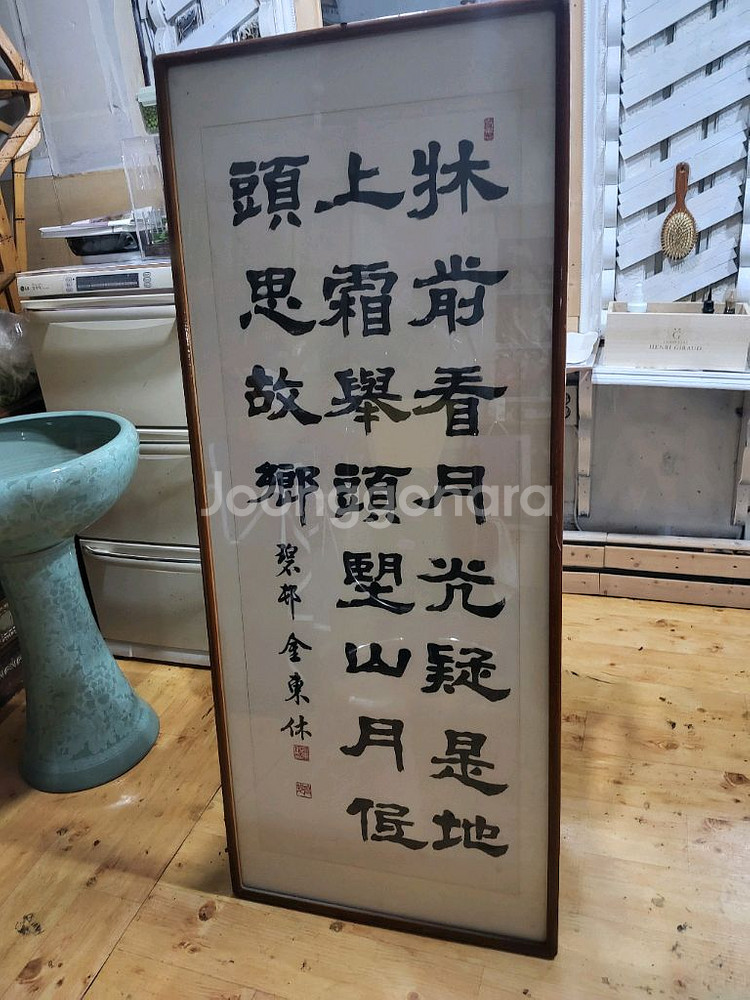 牀前看月光疑是地
上霜舉頭朢山月低
頭思故鄉
碧邨金東休
Joonggonara
LG
HENRI GIRAUD